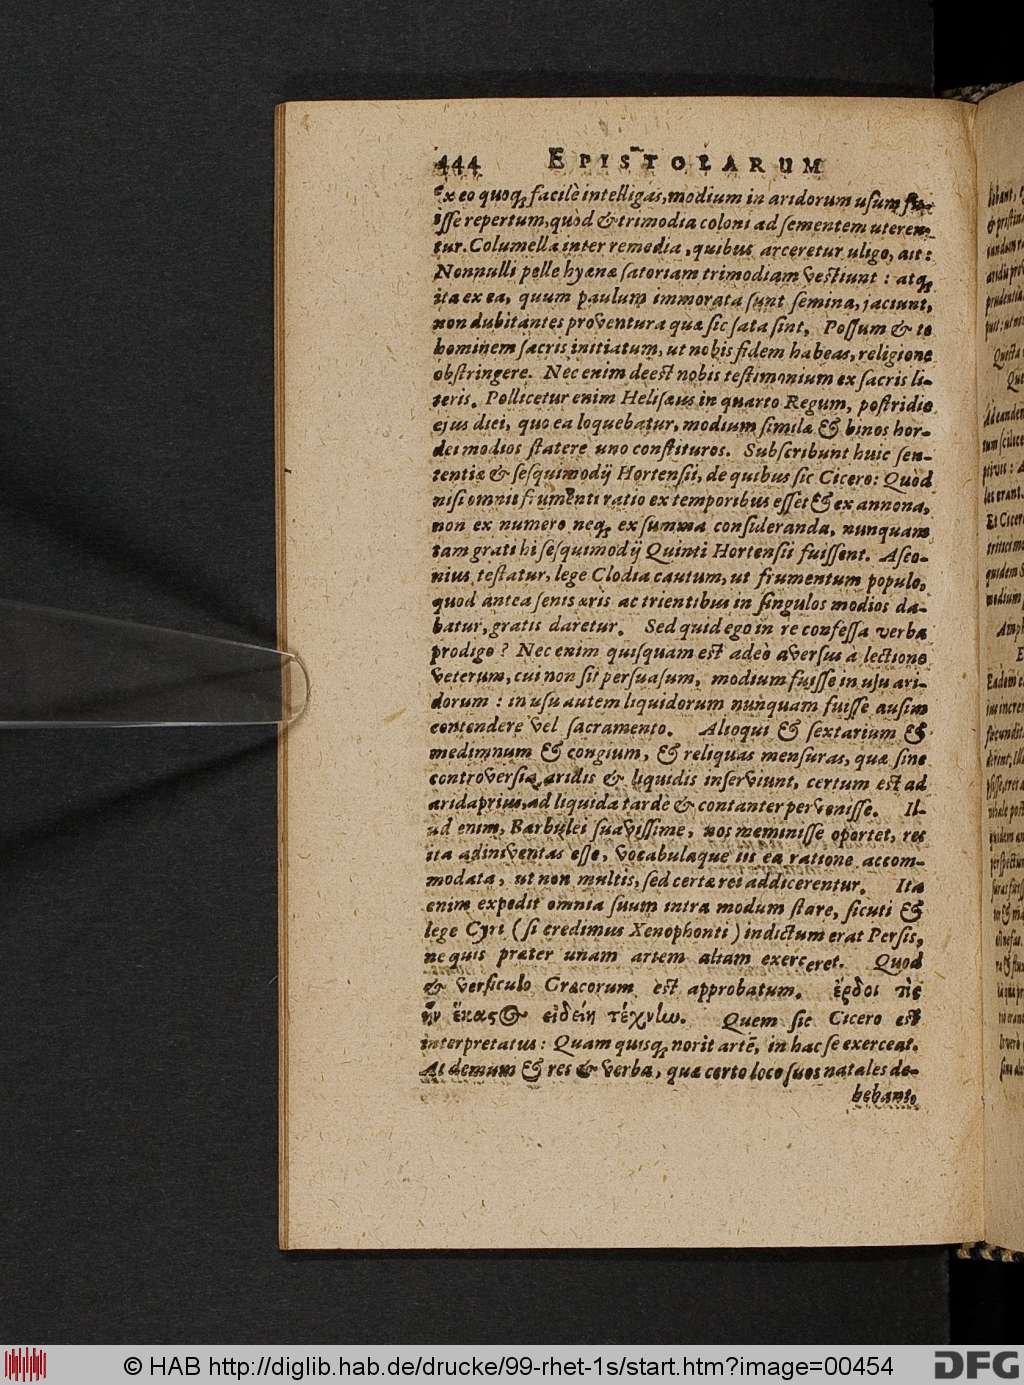 444 EPISTOLARUM
Ex eo quoq; facilè intelligas, modium in aridorum usum fu-
isse repertum, quòd & trimodia coloni ad sementem uteren-
tur. Columella inter remedia, quibus arceretur uligo, ait:
Nonnulli pelle hyænæ satoriam trimodiam vestiunt: atq;
ita ex ea, quum paulum immorata sunt semina, jaciunt,
non dubitantes proventura quæ sic sata sint. Possum & te
hominem sacris initiatum, ut nobis fidem habeas, religione
obstringere. Nec enim deest nobis testimonium ex sacris li-
teris. Pollicetur enim Helisæus in quarto Regum, postridie
ejus diei, quo ea loquebatur, modium similæ & binos hor-
dei modios statere uno constituros. Subscribunt huic sen-
tentiæ & sesquimodij Hortensii, de quibus sic Cicero: Quòd
nisi omnis frumenti ratio ex temporibus esset & ex annona,
non ex numero neq; ex summa consideranda, nunquam
tam grati hi sesquimodij Quinti Hortensii fuissent. Asco-
nius testatur, lege Clodia cautum, ut frumentum populo,
quod antea senis æris ac trientibus in singulos modios da-
batur, gratis daretur. Sed quid ego in re confessa verba
prodigo? Nec enim quisquam est adeò aversus a lectione
veterum, cui non sit persuasum, modium fuisse in usu ari-
dorum: in usu autem liquidorum nunquam fuisse ausim
contendere vel sacramento. Alioqui & sextarium &
medimnum & congium, & reliquas mensuras, quæ sine
controversia aridis & liquidis inserviunt, certum est ad
arida prius, ad liquida tardè & contanter pervenisse. Il-
ud enim, Barbulei suavissime, nos meminisse oportet, res
ita adinventas esse, vocabulaque iis ea ratione accom-
modata, ut non multis, sed certæ rei addicerentur. Ita
enim expedit omnia suum intra modum stare, sicuti &
lege Cyri (si credimus Xenophonti) indictum erat Persis,
ne quis præter unam artem aliam exerceret. Quod
& versiculo Græcorum est approbatum. ἔρδοι τὶς
ἣν ἕκαςος εἰδείη τέχνην. Quem sic Cicero est
interpretatus: Quam quisq; norit artē, in hac se exerceat.
At demum & res & verba, quæ certo loco suos natales de-
bebant,
© HAB http://diglib.hab.de/drucke/99-rhet-1s/start.htm?image=00454
DFG